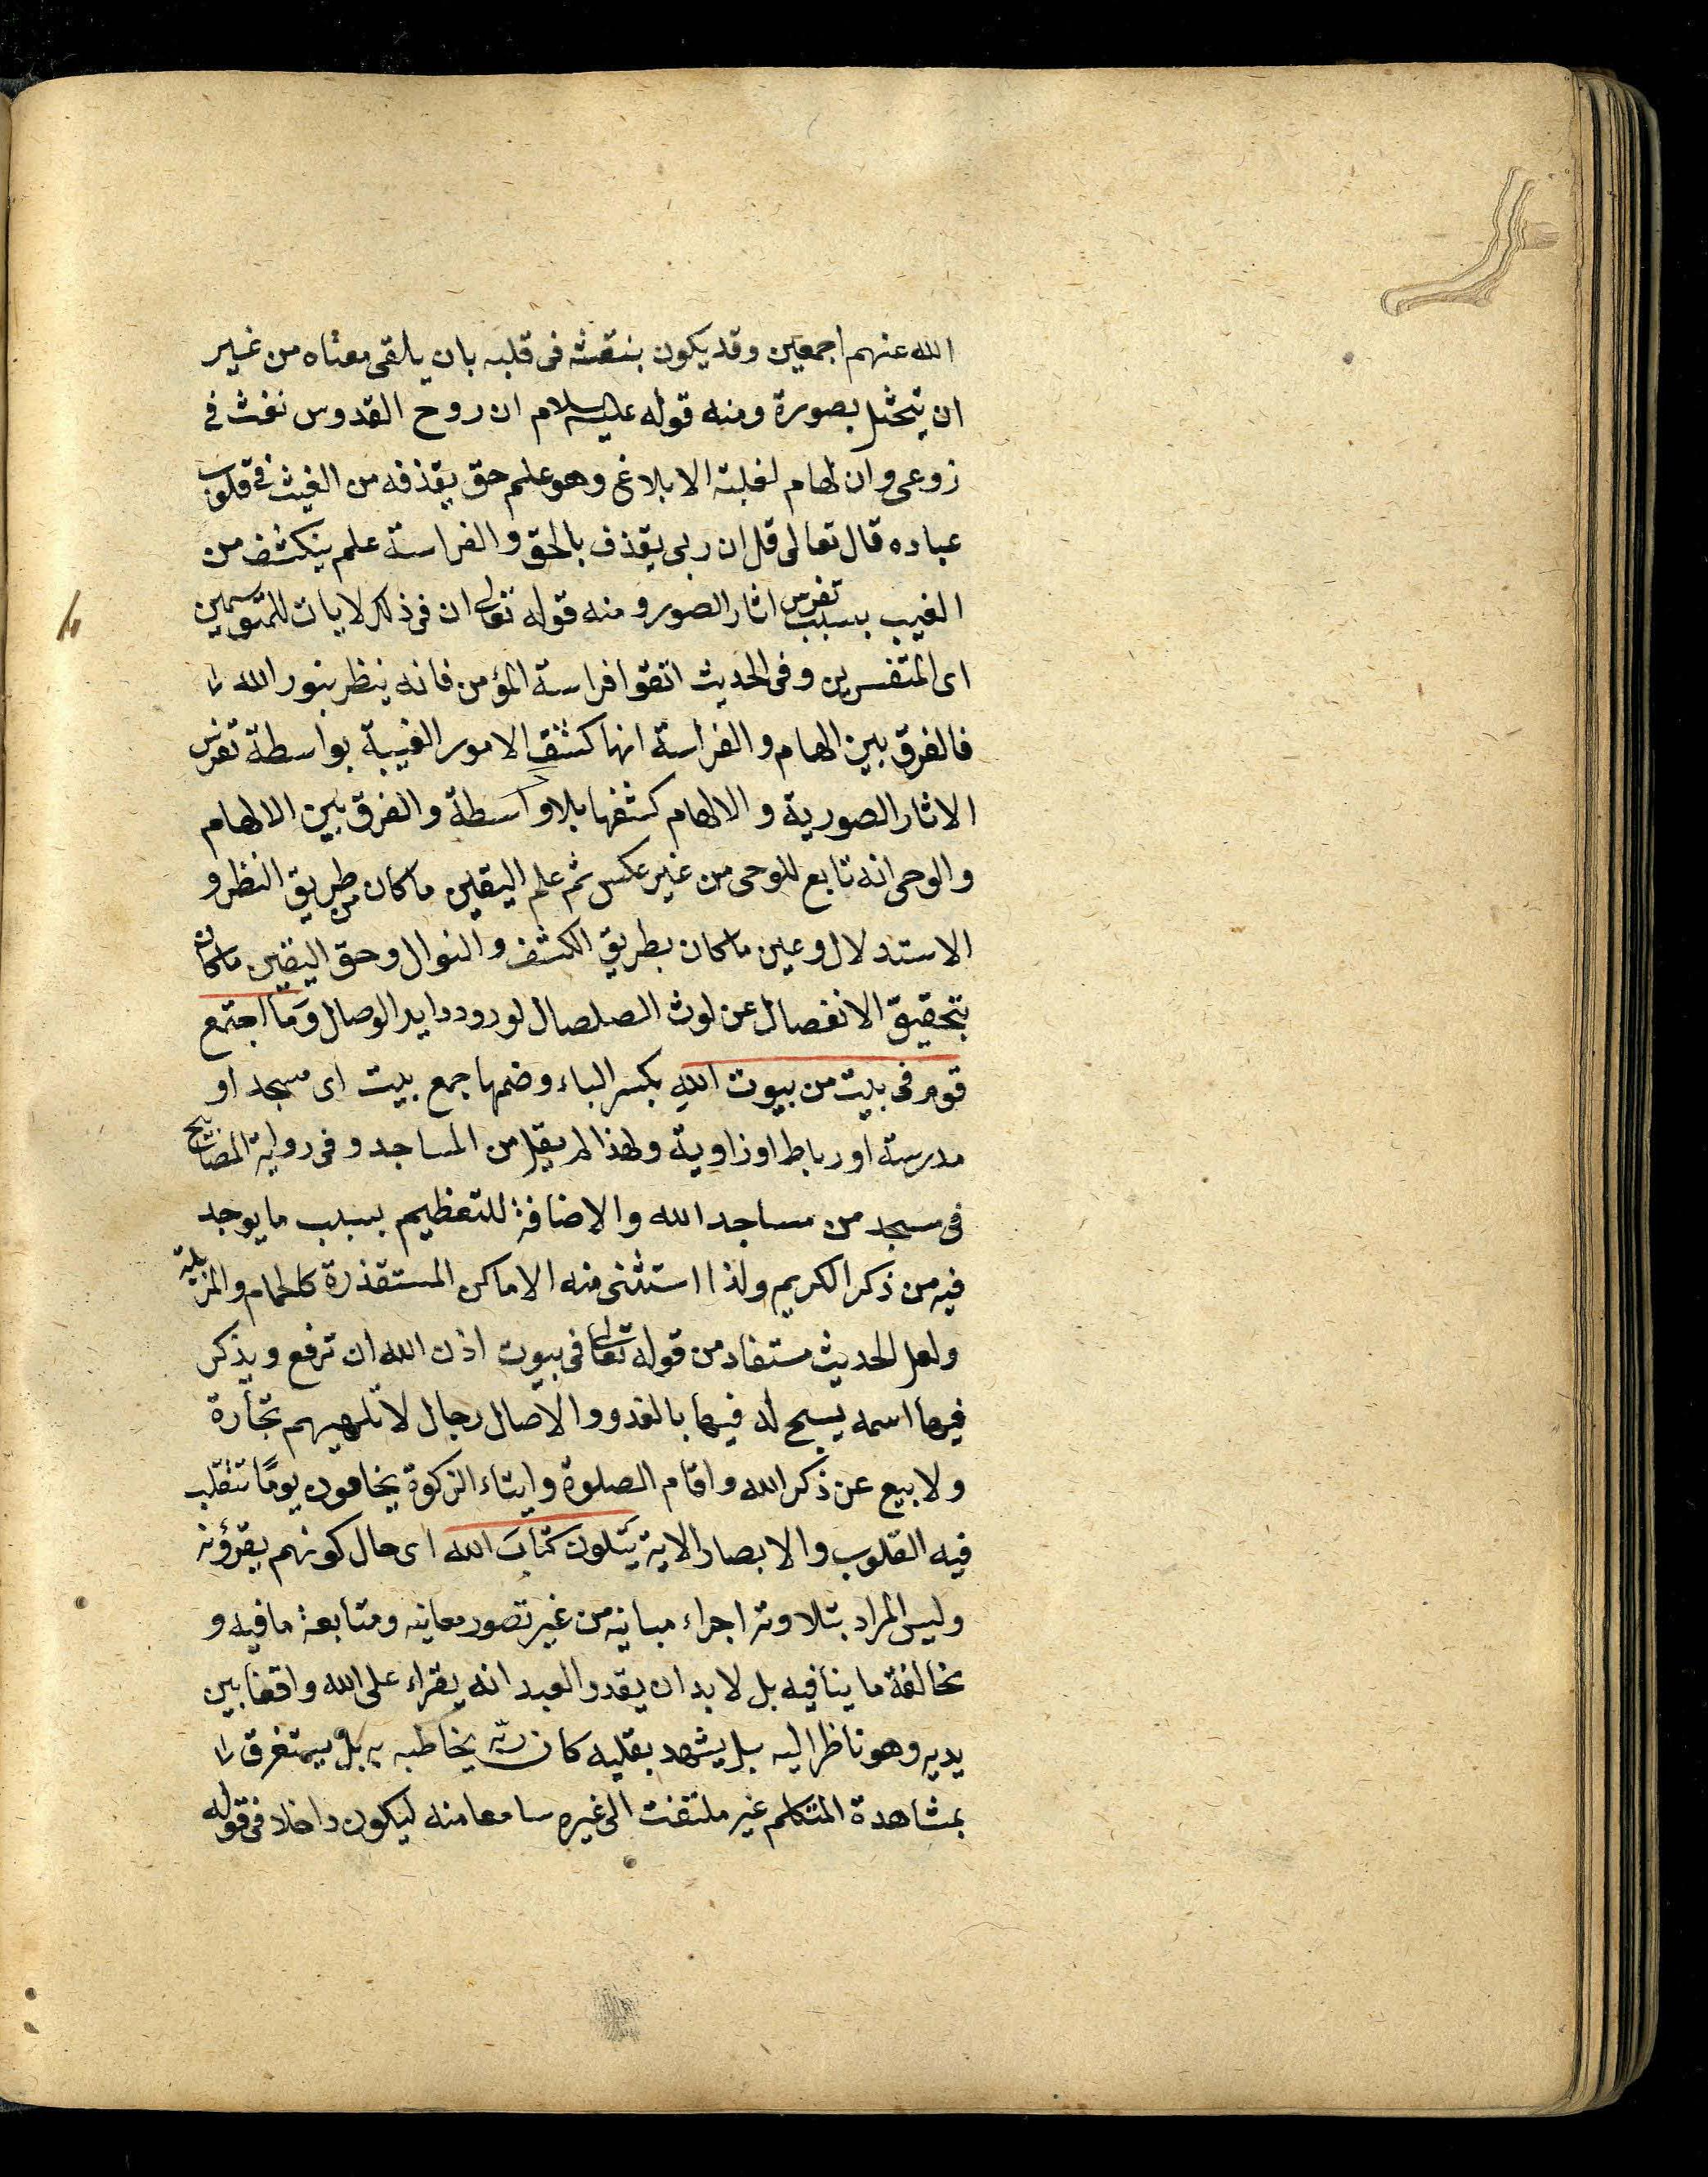 الله عنهم اجمعين وقد يكون بنفثه فى قلبه بان يلقى معناه من غير
ان يتمثل بصورة ومنه قوله عليه السلام ان روح القدوس نفث فى
زوعى وان لهام لغلبته الابلاغ وهو علم حق يقذفه من الغيث فى قلوب
عباده قال تعالى قل ان ربى يقذف بالحق والفراسة علم ينكشف من
الغيب بسبب تفرس اثار الصور ومنه قوله تعالى ان فى ذلك لايات للمتوسمين
اى المتفسرين وفى الحديث اتقوا فراسة المؤمن فانه ينظر بنور الله
فالفرق بين الهام والفراسة انها كشف الامور الغيبة بواسطة تفرس
الاثار الصورية والالهام كشفها بلا واسطة والفرق بين الالهام
والوحى انه تابع للوحى من غير عكس ثم علم اليقين ما كان من طريق النظر و
الاستدلال وعين ما كان بطريق الكشف والنوال وحق اليقين ما كان
بتحقيق الانفصال عن لوث الصلصال لورود دايد الوصال وَمَا اجتمع
قوم فى بيت من بيوت الله بكسر الباء وضمها جمع بيت اى مسجد او
مدرسة او رباط او زاوية ولهذا لم يقل من المساجد وفى رواية المصابيح
فى مسجد من مساجد الله والاضافة للتعظيم بسبب ما يوجد
فيه من ذكر الكريم ولذا استثنى منه الاماكن المستقذرة كالحمام والمزبلة
ولعل الحديث مستفاد من قوله تعالى فى بيوت اذن الله ان ترفع ويذكر
فيها اسمه يسبح له فيها بالغدو والاصال رجال لا تلهيهم تجارة
ولا بيع عن ذكر الله واقام الصلوة وايتاء الزكوة يخافون يومًا تتقلب
فيه القلوب والابصار الاية يَتلون كتابَ الله اى حال كونهم يقرؤنه
وليس المراد بتلاوته اجراء مبانيه من غير تصور معانيه ومتابعة ما فيه و
مخالفة ما ينافيه بل لا بد ان يقدر العبد انه يقراء على الله واقفا بين
يديه وهو ناظر اليه بل يشهد بقلبه كان ربه يخاطبه به بل يستغرق
بمشاهدة المتكلم غير ملتفت الى غيره سامعا منه ليكون داخلا فى قوله